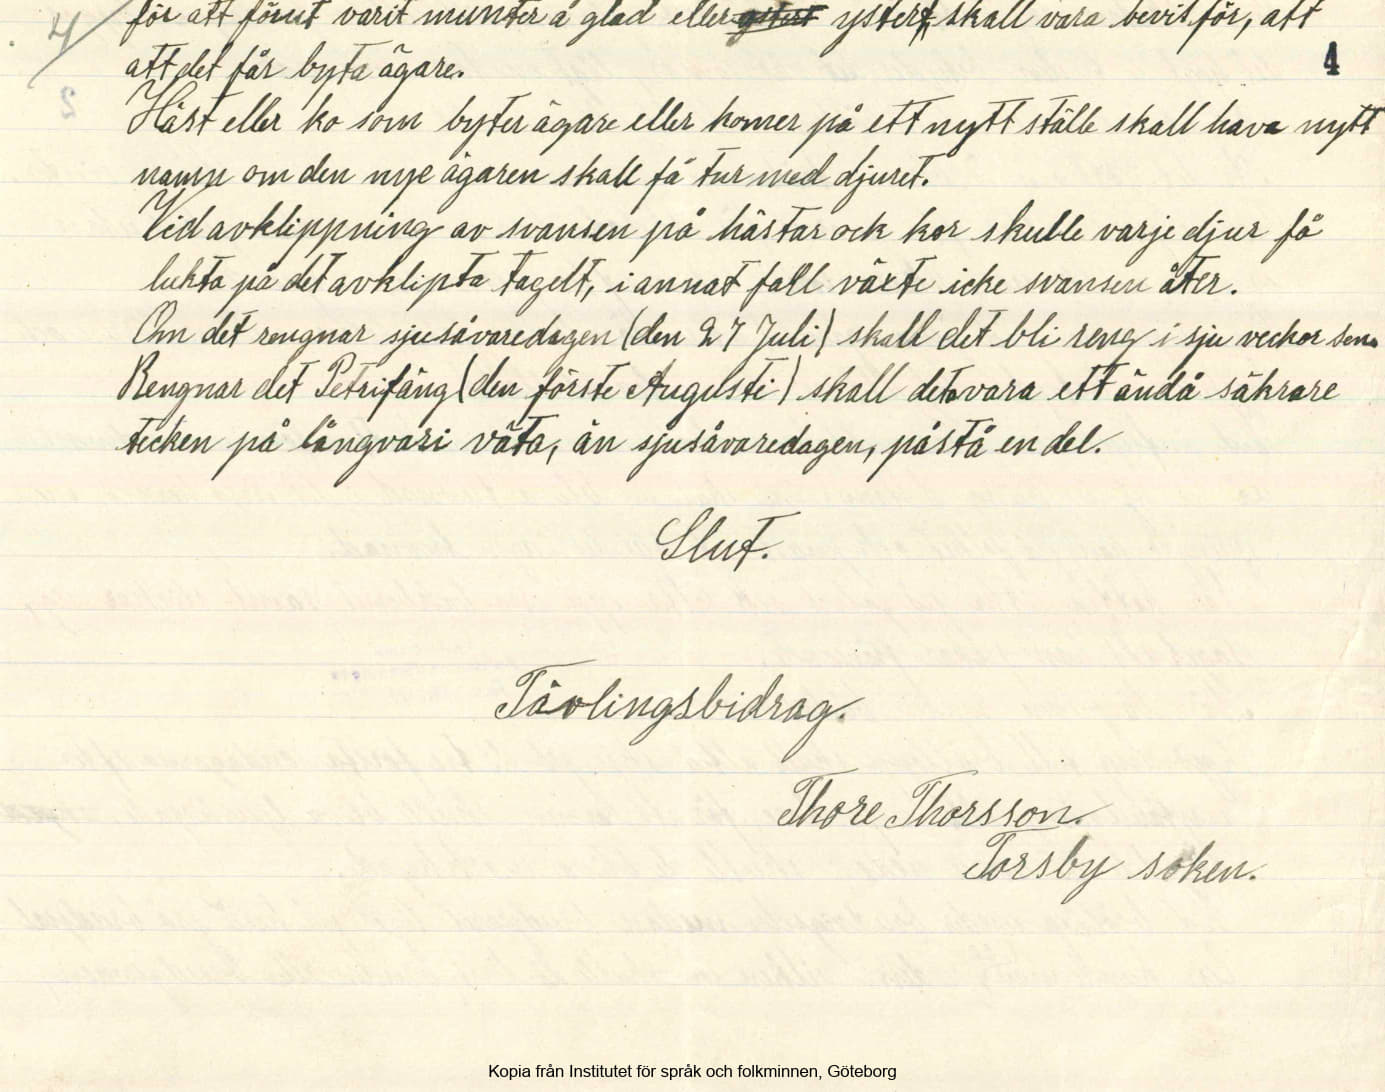 4
för att förut varit munter å glad eller ystert yster, skall vara bevis för, att
4
att det får byta ägare.
2
Häst eller ko som byter ägare eller komer på ett nytt ställe skall hava nytt
namn om den nye ägaren skall få tur med djuret.
Vid avklippning av svansen på hästar ock kor skulle varje djur få
lukta på det avklipta tagelt, i annat fall växte icke svansen åter.
Om det rengnar sjusåvaredagen (den 27 Juli) skall det bli reng i sju veckor sena
Rengnar det Petrifäng (den förste Augusti) skall det vara ett ändå säkrare
tecken på långvari väta, än sjusåvaredagen, påstå en del.
Slut.
Tävlingsbidrag.
Thore Thorsson.
Torsby soken.
Kopia från Institutet för språk och folkminnen, Göteborg